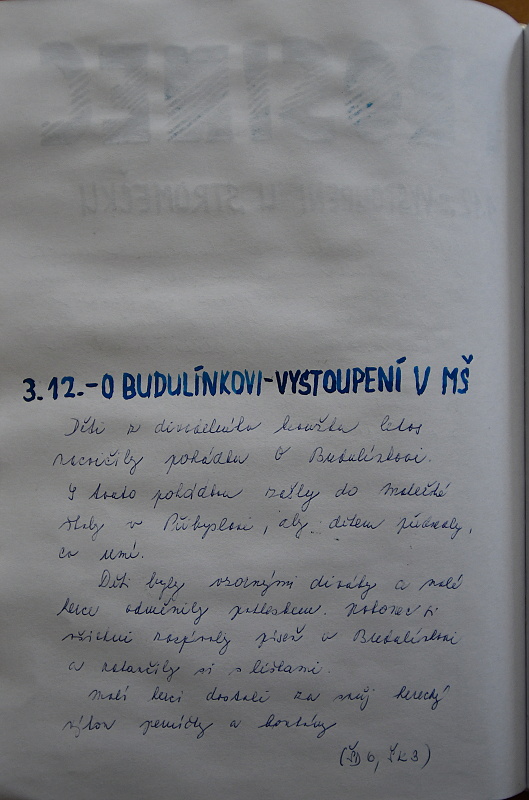 3.12.-O BUDULÍNKOVI-VYSTOUPENÍ V MŠ
Děti z divadelního kroužku letos
nacvičily pohádku O Budulínkovi.
S touto pohádkou zašly do mateřské
školy v Přibyslavi, aby dětem předvedly,
co umí.
Děti byly vzornými diváky a malé
herce odměnily potleskem. Nakonec si
všichni zazpívaly píseň o Budulínkovi
a zatančily si s liškami.
Malí herci dostali za svůj herecký
výkon perníčky a bonbóny
(ŠD 6, ŠK 3)